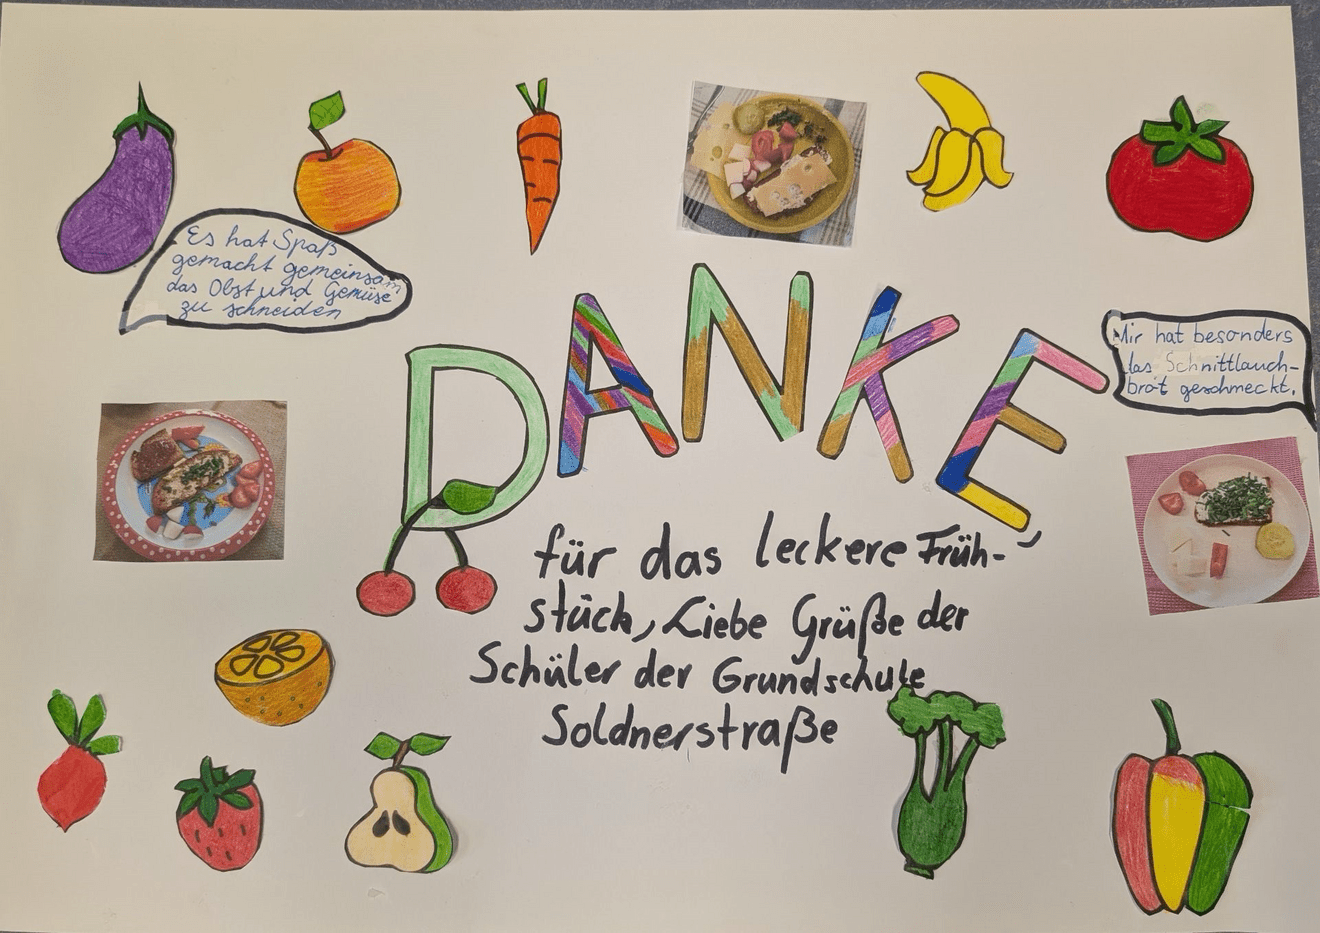 Es hat Spaß
gemacht gemeinsam
das Obst und Gemüse
zu schneiden
DANKE
Mir hat besonders
das Schnittlauch-
brot geschmeckt.
für das leckere Früh-
stück, Liebe Grüße der
Schüler der Grundschule
Soldnerstraße